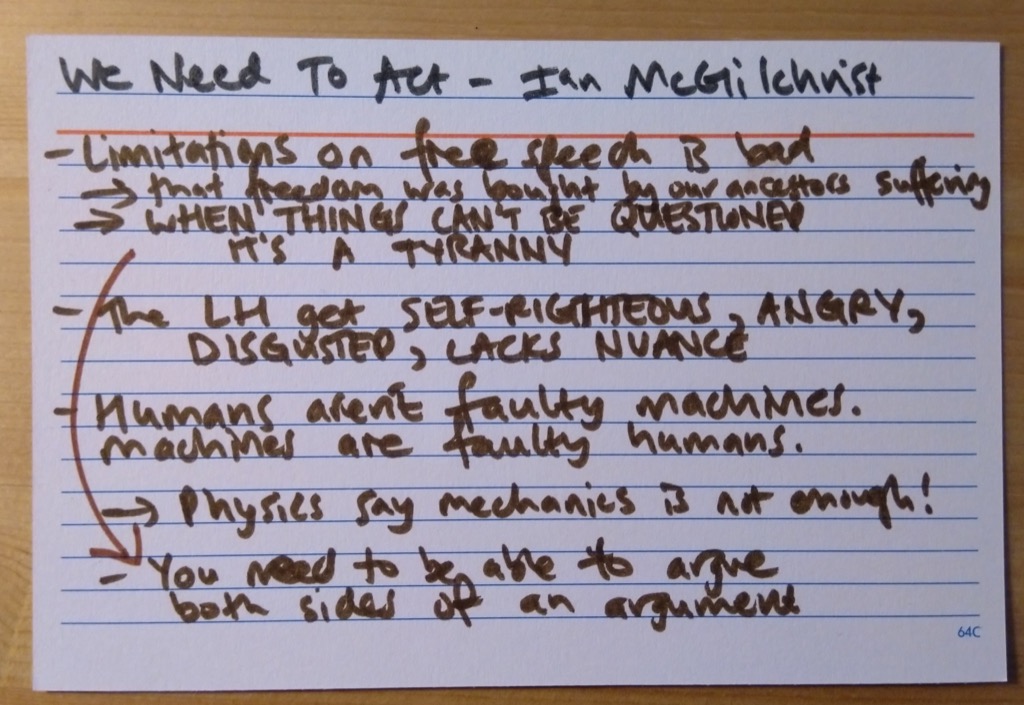 We Need To Act - Ian McGilchrist
- Limitations on free speech is bad
→ that freedom was bought by our ancestors suffering
→ WHEN THINGS CAN'T BE QUESTIONED
IT'S A TYRANNY
- The LH get SELF-RIGHTEOUS, ANGRY,
DISGUSTED, LACKS NUANCE
- Humans aren't faulty machines.
machines are faulty humans.
→ Physics say mechanics is not enough!
- You need to be able to argue
both sides of an argument
64C